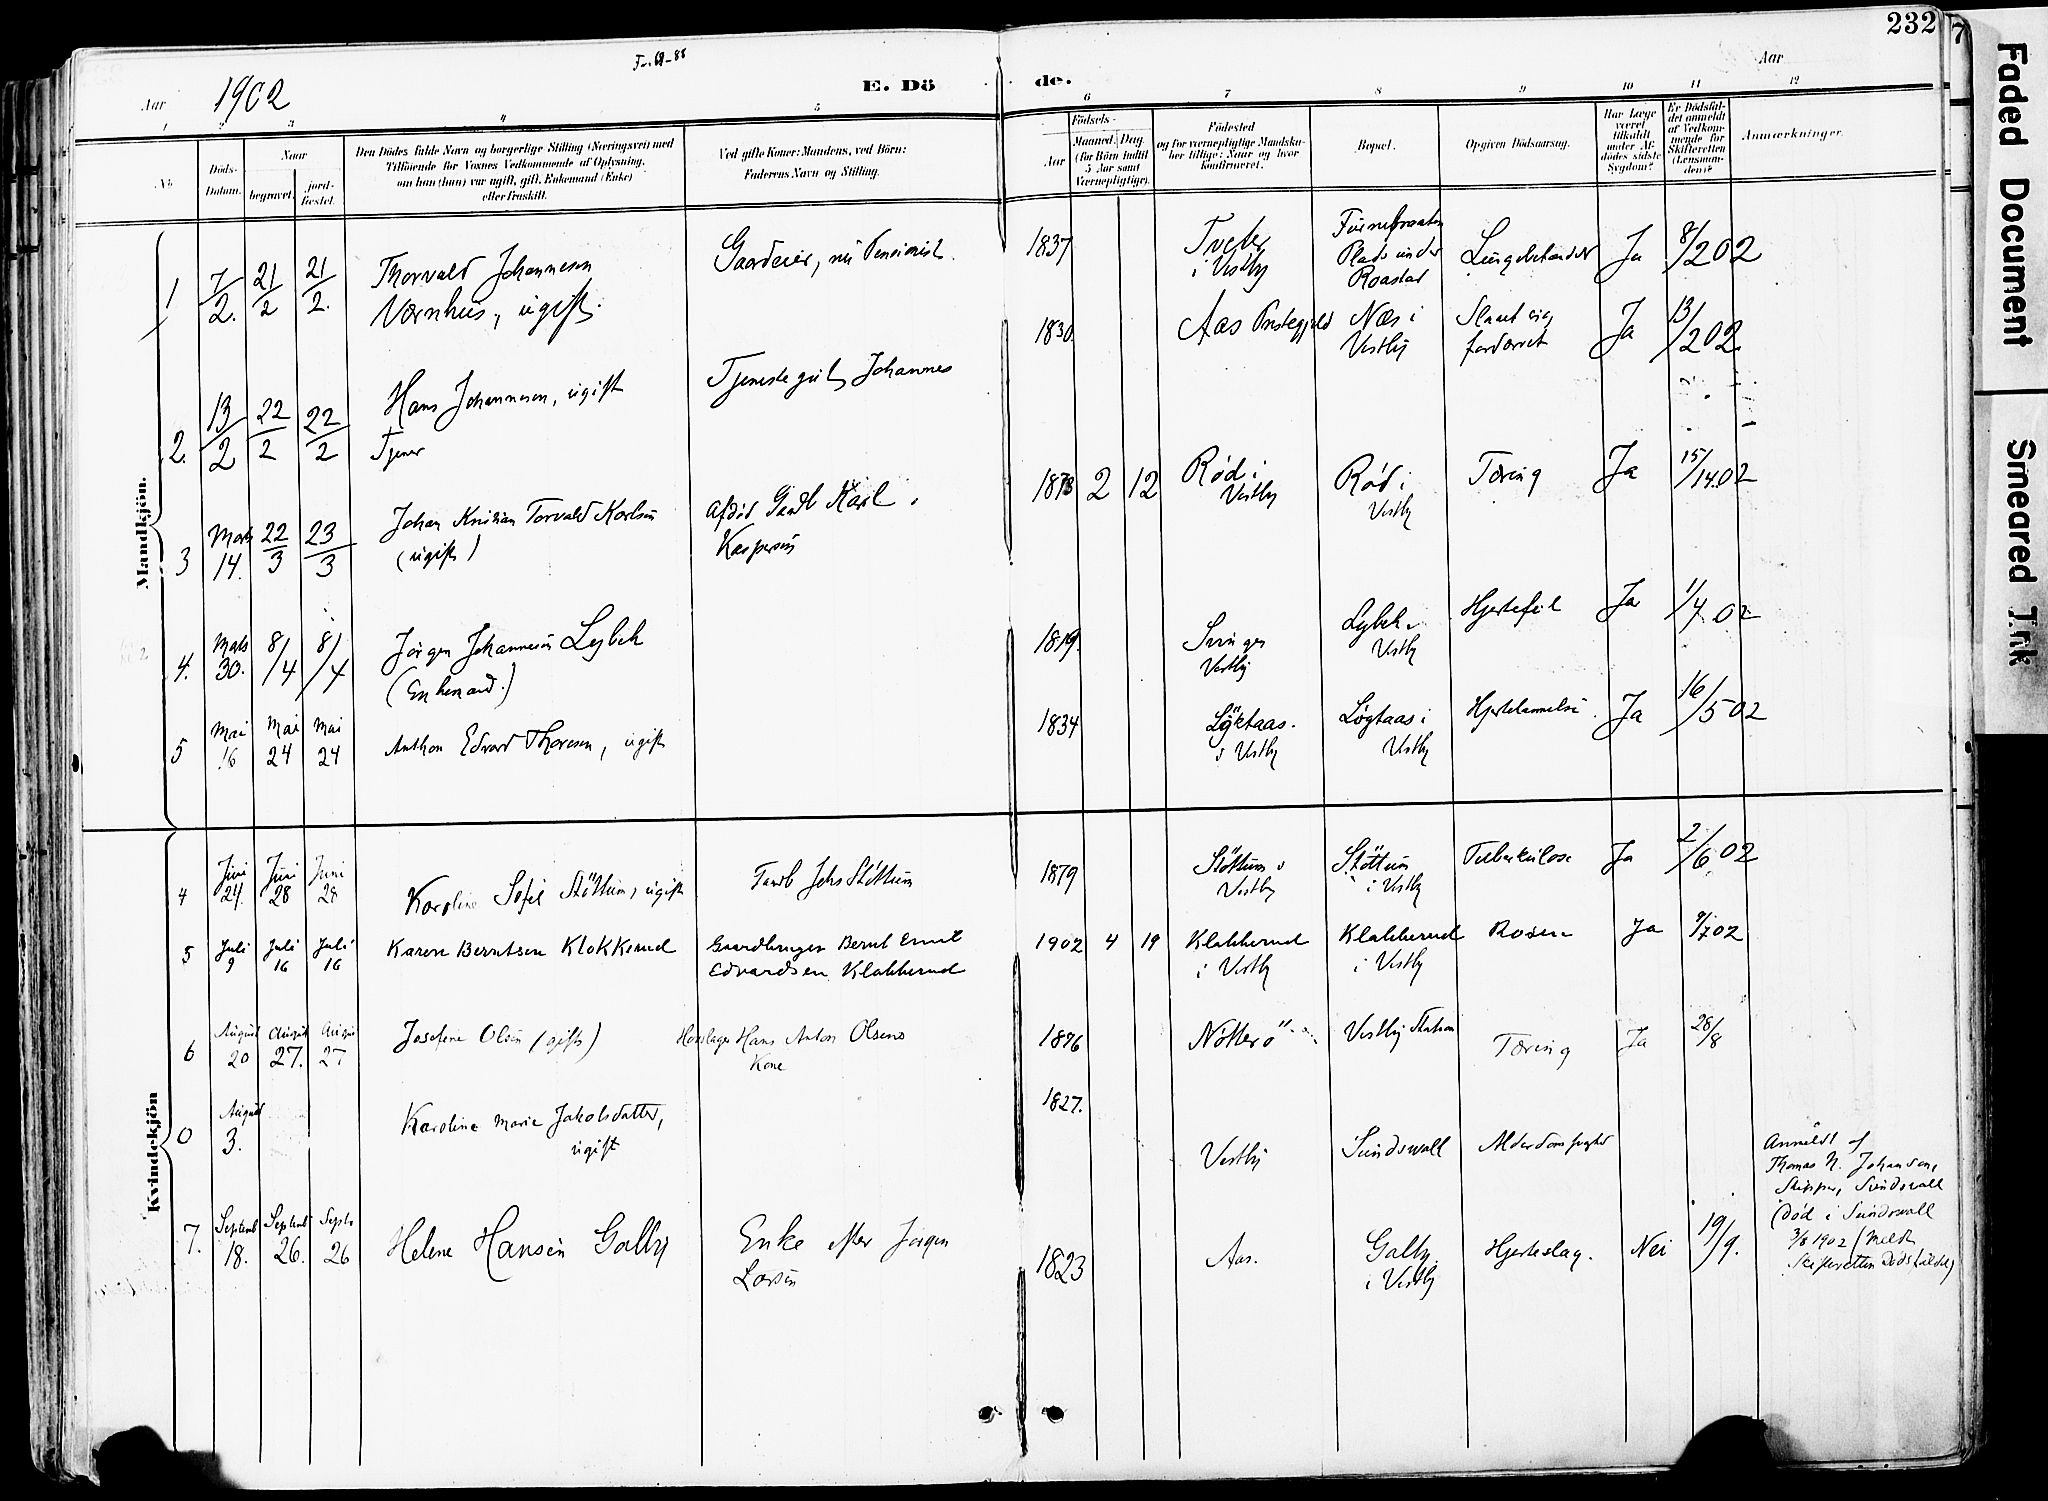 232
Faded Document
Smeared Ink
Aar 1902
E. Dö
de.
Aar
1 2 3 4 5 6 7 8 9 10 11 12
No.
Döds-
Datum.
Naar
begravet.
jord-
fæstet.
Den Dödes fulde Navn og borgerlige Stilling (Næringsvei) med
Tilföiende for Voxnes Vedkommende af Oplysning,
om han (hun) var ugift, gift, Enkemand (Enke)
eller fraskilt.
Ved gifte Koner: Mandens, ved Börn:
Faderens Navn og Stilling.
Födsels-
Aar
Maaned.
Dag.
(for Börn indtil
5 Aar samt
Værnepligtige).
Födested
og for værnepligtige Mandsku-
her tillige: Naar og hvor
konfirmeret.
Bopæl.
Opgiven Dödsaarsag.
Har Læge
været
tilkaldt
under Af-
dödes sidste
Sygdom?
Er Dödsfal-
det anmeldt
af Vedkom-
mende for
Skifteretten
(Lensman-
den)?
Anmærkninger.
Mandkjön.
1 7/2. 21/2 21/2. Thorvald Johannesen
Værnhus, ugift.
Gaardeier, nu Pensionist.
1837 Tveter
i Vestby
Plads under
Roastad
Lungebetændelse Ja 8/2 02
2. 13/2 22/2 22/2 Hans Johannesen, ugift
Tjener
Tjenestegut Johannes
1830. Aas Prstegjeld Næs i
Vestby
fordærvet Ja 13/2 02.
3 Mars
14. 22/3 23/3 Johan Kristian Torvald Karlsen
(ugift)
Afdød Gaardb Karl
Kaspersen
1873 2 12 Rød i
Vestby
Rød i
Vestby
Tæring Ja 15/14.02
4. Mars
30. 8/4 8/4 Jørgen Johannesen Lybek
(Enkemand.)
1819. Vestby
Lybek i
Vestby
Hjertefeil Ja 1/4 02
5 Mai
16 Mai
24 Mai
24 Anthon Edvard Thoresen, ugift
1834 Løktaas.
i Vestby
Løgtaas i
Vestby
Hjertelammelse. Ja 16/5 02
Kvindekjön
4 Juni
24. Juni
28 Juni
28 Karoline Sofie Støttum, ugift
Gaardb Johs Støttum
1879 Støttum i
Vestby
Støttum
i Vestby
Tuberkulose Ja 2/6 02
5 Juli
9 Juli
16 Juli
16 Karen Berntsen Klokkerud
Gaardbruger Bernt Emil
Edvardsen Klokkerud
1902 4 19 Klokkerud
i Vestby
Klokkerud
i Vestby
Rosen Ja 9/7 02
6 August
20 August
27. August
27 Josefine Olsen (gift)
Hovslager Hans Anton Olsens
Kone
1876 Nötterö Vestby Station Tæring Ja 28/8
0 August
3. Karoline Marie Jakobsdatter,
ugift
1827.
Vestby Sundswall Alderdomsvaghed
Anmeldt af
Thomas N. Johansen,
Skipper, Sundswall
(død i Sundswall
3/8 1902 (Meldt
Skifteretten Dødsfaldet)
7. Septemb
18. Septemb
26. Septb
26 Helene Hansen Galby
Enke efter Jørgen
Larsen
1823 Aas. Galby
i Vestby
Hjerteslag. Nei 19/9.